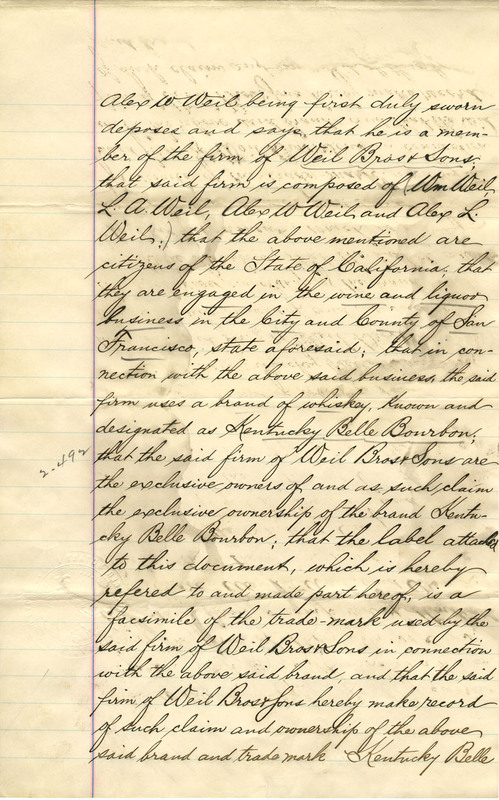 Alex W Weil being first duly sworn
deposes and says, that he is a mem-
ber of the firm of Weil Bros & Sons;
that said firm is composed of (Wm Weil
L. A. Weil, Alex W Weil, and Alex L.
Weil;) that the above mentioned are
citizens of the State of California; that
they are engaged in the wine and liquor
business in the City and County of San
Francisco, state aforesaid; that in con-
nection with the above said business, the said
firm uses a brand of whiskey, known and
designated as Kentucky Belle Bourbon;
that the said firm of Weil Bros & Sons are
the exclusive owners of and as such, claim
the exclusive ownership of the brand Kentu-
cky Belle Bourbon; that the label attached
to this document, which is hereby
refered to and made part hereof, is a
facsimile of the trade-mark used by the
said firm of Weil Bros & Sons in connection
with the above said brand, and that the said
firm of Weil Bros & Sons hereby make record
of such claim and ownership of the above
said brand and trade mark Kentucky Belle
2-492